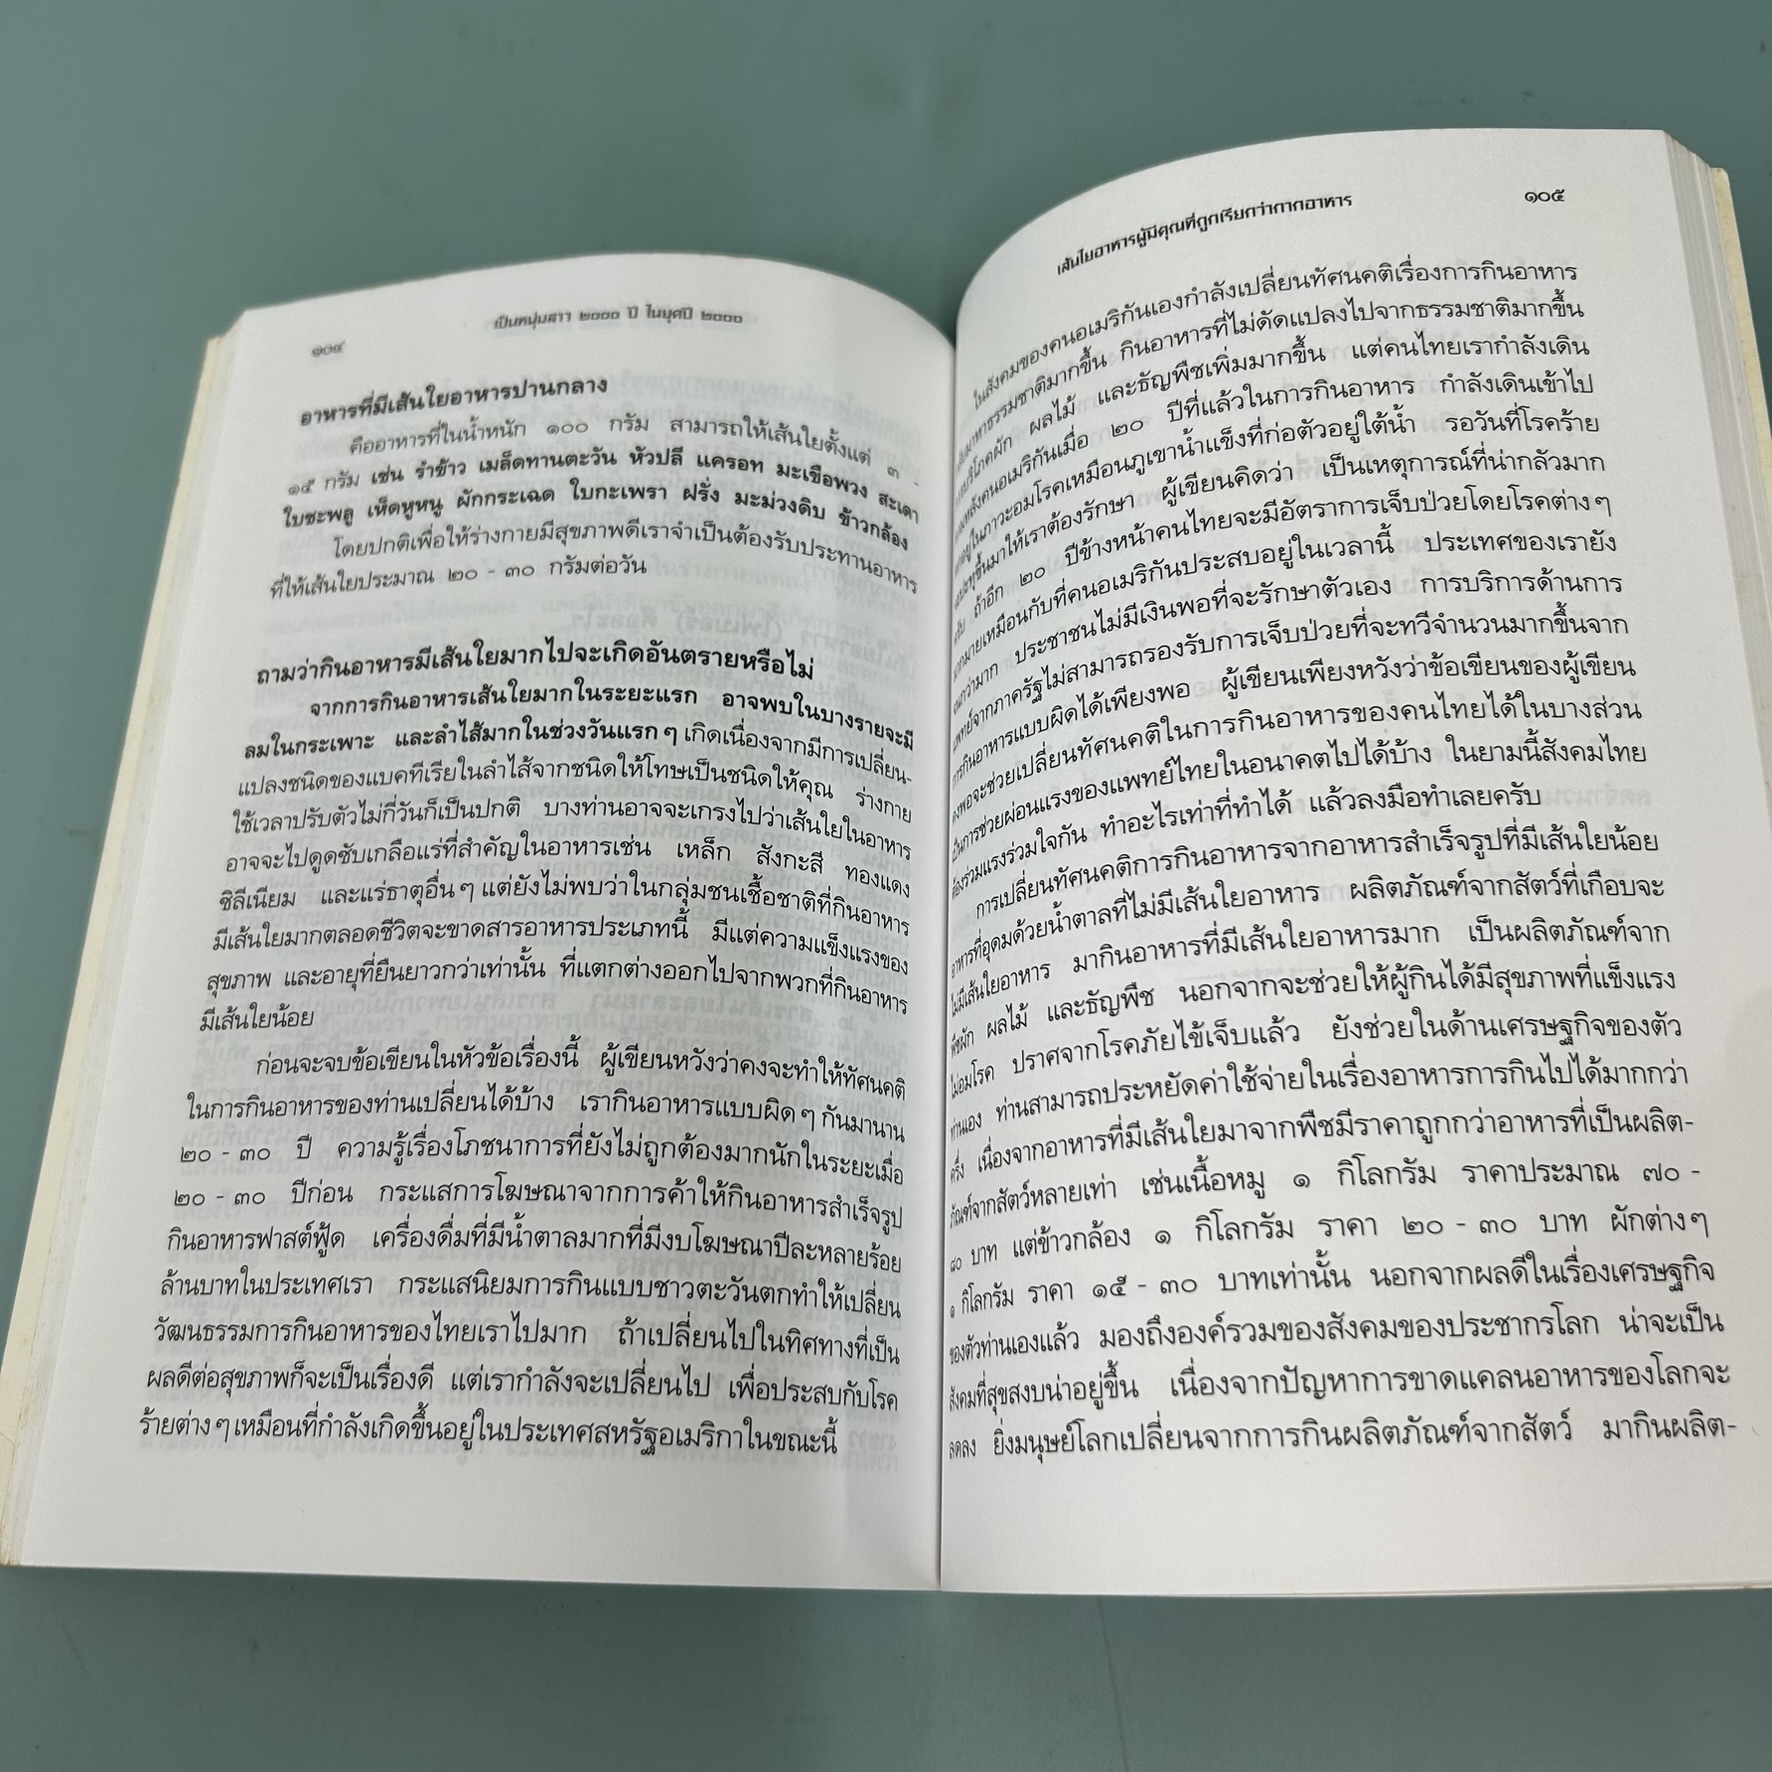 ๑๐๔
เป็นหนุ่มสาว ๒๐๐๐ ปี ในยุคปี ๒๐๐๐
อาหารที่มีเส้นใยอาหารปานกลาง
คืออาหารที่ในน้ำหนัก ๑๐๐ กรัม สามารถให้เส้นใยตั้งแต่ ๓ -
๑๕ กรัม เช่น รำข้าว เมล็ดทานตะวัน หัวปลี แครอท มะเขือพวง สะเดา
ใบชะพลู เห็ดหูหนู ผักกระเฉด ใบกะเพรา ฝรั่ง มะม่วงดิบ ข้าวกล้อง
โดยปกติเพื่อให้ร่างกายมีสุขภาพดีเราจำเป็นต้องรับประทานอาหาร
ที่ให้เส้นใยประมาณ ๒๐ - ๓๐ กรัมต่อวัน
ถามว่ากินอาหารมีเส้นใยมากไปจะเกิดอันตรายหรือไม่
จากการกินอาหารเส้นใยมากในระยะแรก อาจพบในบางรายจะมี
ลมในกระเพาะ และลำไส้มากในช่วงวันแรก ๆ เกิดเนื่องจากมีการเปลี่ยน-
แปลงชนิดของแบคทีเรียในลำไส้จากชนิดให้โทษเป็นชนิดให้คุณ ร่างกาย
ใช้เวลาปรับตัวไม่กี่วันก็เป็นปกติ บางท่านอาจจะเกรงไปว่าเส้นใยในอาหาร
อาจจะไปดูดซับเกลือแร่ที่สำคัญในอาหารเช่น เหล็ก สังกะสี ทองแดง
ซิลีเนียม และแร่ธาตุอื่น ๆ แต่ยังไม่พบว่าในกลุ่มชนเชื้อชาติที่กินอาหาร
มีเส้นใยมากตลอดชีวิตจะขาดสารอาหารประเภทนี้ มีแต่ความแข็งแรงของ
สุขภาพ และอายุที่ยืนยาวกว่าเท่านั้น ที่แตกต่างออกไปจากพวกที่กินอาหาร
มีเส้นใยน้อย
ก่อนจะจบข้อเขียนในหัวข้อเรื่องนี้ ผู้เขียนหวังว่าคงจะทำให้ทัศนคติ
ในการกินอาหารของท่านเปลี่ยนได้บ้าง เรากินอาหารแบบผิด ๆ กันมานาน
๒๐ - ๓๐ ปี ความรู้เรื่องโภชนาการที่ยังไม่ถูกต้องมากนักในระยะเมื่อ
๒๐ - ๓๐ ปีก่อน กระแสการโฆษณาจากการค้าให้กินอาหารสำเร็จรูป
กินอาหารฟาสต์ฟู้ด เครื่องดื่มที่มีน้ำตาลมากที่มีงบโฆษณาปีละหลายร้อย
ล้านบาทในประเทศเรา กระแสนิยมการกินแบบชาวตะวันตกทำให้เปลี่ยน
วัฒนธรรมการกินอาหารของไทยเราไปมาก ถ้าเปลี่ยนไปในทิศทางที่เป็น
ผลดีต่อสุขภาพก็จะเป็นเรื่องดี แต่เรากำลังจะเปลี่ยนไป เพื่อประสบกับโรค
ร้ายต่าง ๆ เหมือนที่กำลังเกิดขึ้นอยู่ในประเทศสหรัฐอเมริกาในขณะนี้
เส้นใยอาหารผู้มีคุณที่ถูกเรียกว่ากากอาหาร
๑๐๕
ในสังคมของคนอเมริกันเองกำลังเปลี่ยนทัศนคติเรื่องการกินอาหาร
ธรรมชาติมากขึ้น กินอาหารที่ไม่ดัดแปลงไปจากธรรมชาติมากขึ้น
บริโภคผัก ผลไม้ และธัญพืชเพิ่มมากขึ้น แต่คนไทยเรากำลังเดิน
หลังคนอเมริกันเมื่อ ๒๐ ปีที่แล้วในการกินอาหาร กำลังเดินเข้าไป
อยู่ในภาวะอมโรคเหมือนภูเขาน้ำแข็งที่ก่อตัวอยู่ใต้น้ำ รอวันที่โรคร้าย
ปะทุขึ้นมาให้เราต้องรักษา ผู้เขียนคิดว่า เป็นเหตุการณ์ที่น่ากลัวมาก
ถ้าอีก ๒๐ ปีข้างหน้าคนไทยจะมีอัตราการเจ็บป่วยโดยโรคต่าง ๆ
มากมายเหมือนกับที่คนอเมริกันประสบอยู่ในเวลานี้ ประเทศของเรายัง
จนกว่ามาก ประชาชนไม่มีเงินพอที่จะรักษาตัวเอง การบริการด้านการ
แพทย์จากภาครัฐไม่สามารถรองรับการเจ็บป่วยที่จะทวีจำนวนมากขึ้นจาก
การกินอาหารแบบผิดได้เพียงพอ ผู้เขียนเพียงหวังว่าข้อเขียนของผู้เขียน
คงพอจะช่วยเปลี่ยนทัศนคติในการกินอาหารของคนไทยได้ในบางส่วน
เป็นการช่วยผ่อนแรงของแพทย์ไทยในอนาคตไปได้บ้าง ในยามนี้สังคมไทย
ต้องร่วมแรงร่วมใจกัน ทำอะไรเท่าที่ทำได้ แล้วลงมือทำเลยครับ
การเปลี่ยนทัศนคติการกินอาหารจากอาหารสำเร็จรูปที่มีเส้นใยน้อย
อาหารที่อุดมด้วยน้ำตาลที่ไม่มีเส้นใยอาหาร ผลิตภัณฑ์จากสัตว์ที่เกือบจะ
ไม่มีเส้นใยอาหาร มากินอาหารที่มีเส้นใยอาหารมาก เป็นผลิตภัณฑ์จาก
พืชผัก ผลไม้ และธัญพืช นอกจากจะช่วยให้ผู้กินได้มีสุขภาพที่แข็งแรง
ไม่อมโรค ปราศจากโรคภัยไข้เจ็บแล้ว ยังช่วยในด้านเศรษฐกิจของตัว
ท่านเอง ท่านสามารถประหยัดค่าใช้จ่ายในเรื่องอาหารการกินไปได้มากกว่า
ครึ่ง เนื่องจากอาหารที่มีเส้นใยมาจากพืชมีราคาถูกกว่าอาหารที่เป็นผลิต-
ภัณฑ์จากสัตว์หลายเท่า เช่นเนื้อหมู ๑ กิโลกรัม ราคาประมาณ ๗๐ -
๘๐ บาท แต่ข้าวกล้อง ๑ กิโลกรัม ราคา ๒๐ - ๓๐ บาท ผักต่าง ๆ
๑ กิโลกรัม ราคา ๑๕ - ๓๐ บาทเท่านั้น นอกจากผลดีในเรื่องเศรษฐกิจ
ของตัวท่านเองแล้ว มองถึงองค์รวมของสังคมของประชากรโลก น่าจะเป็น
สังคมที่สุขสงบน่าอยู่ขึ้น เนื่องจากปัญหาการขาดแคลนอาหารของโลกจะ
ลดลง ยิ่งมนุษย์โลกเปลี่ยนจากการกินผลิตภัณฑ์จากสัตว์ มากินผลิต-